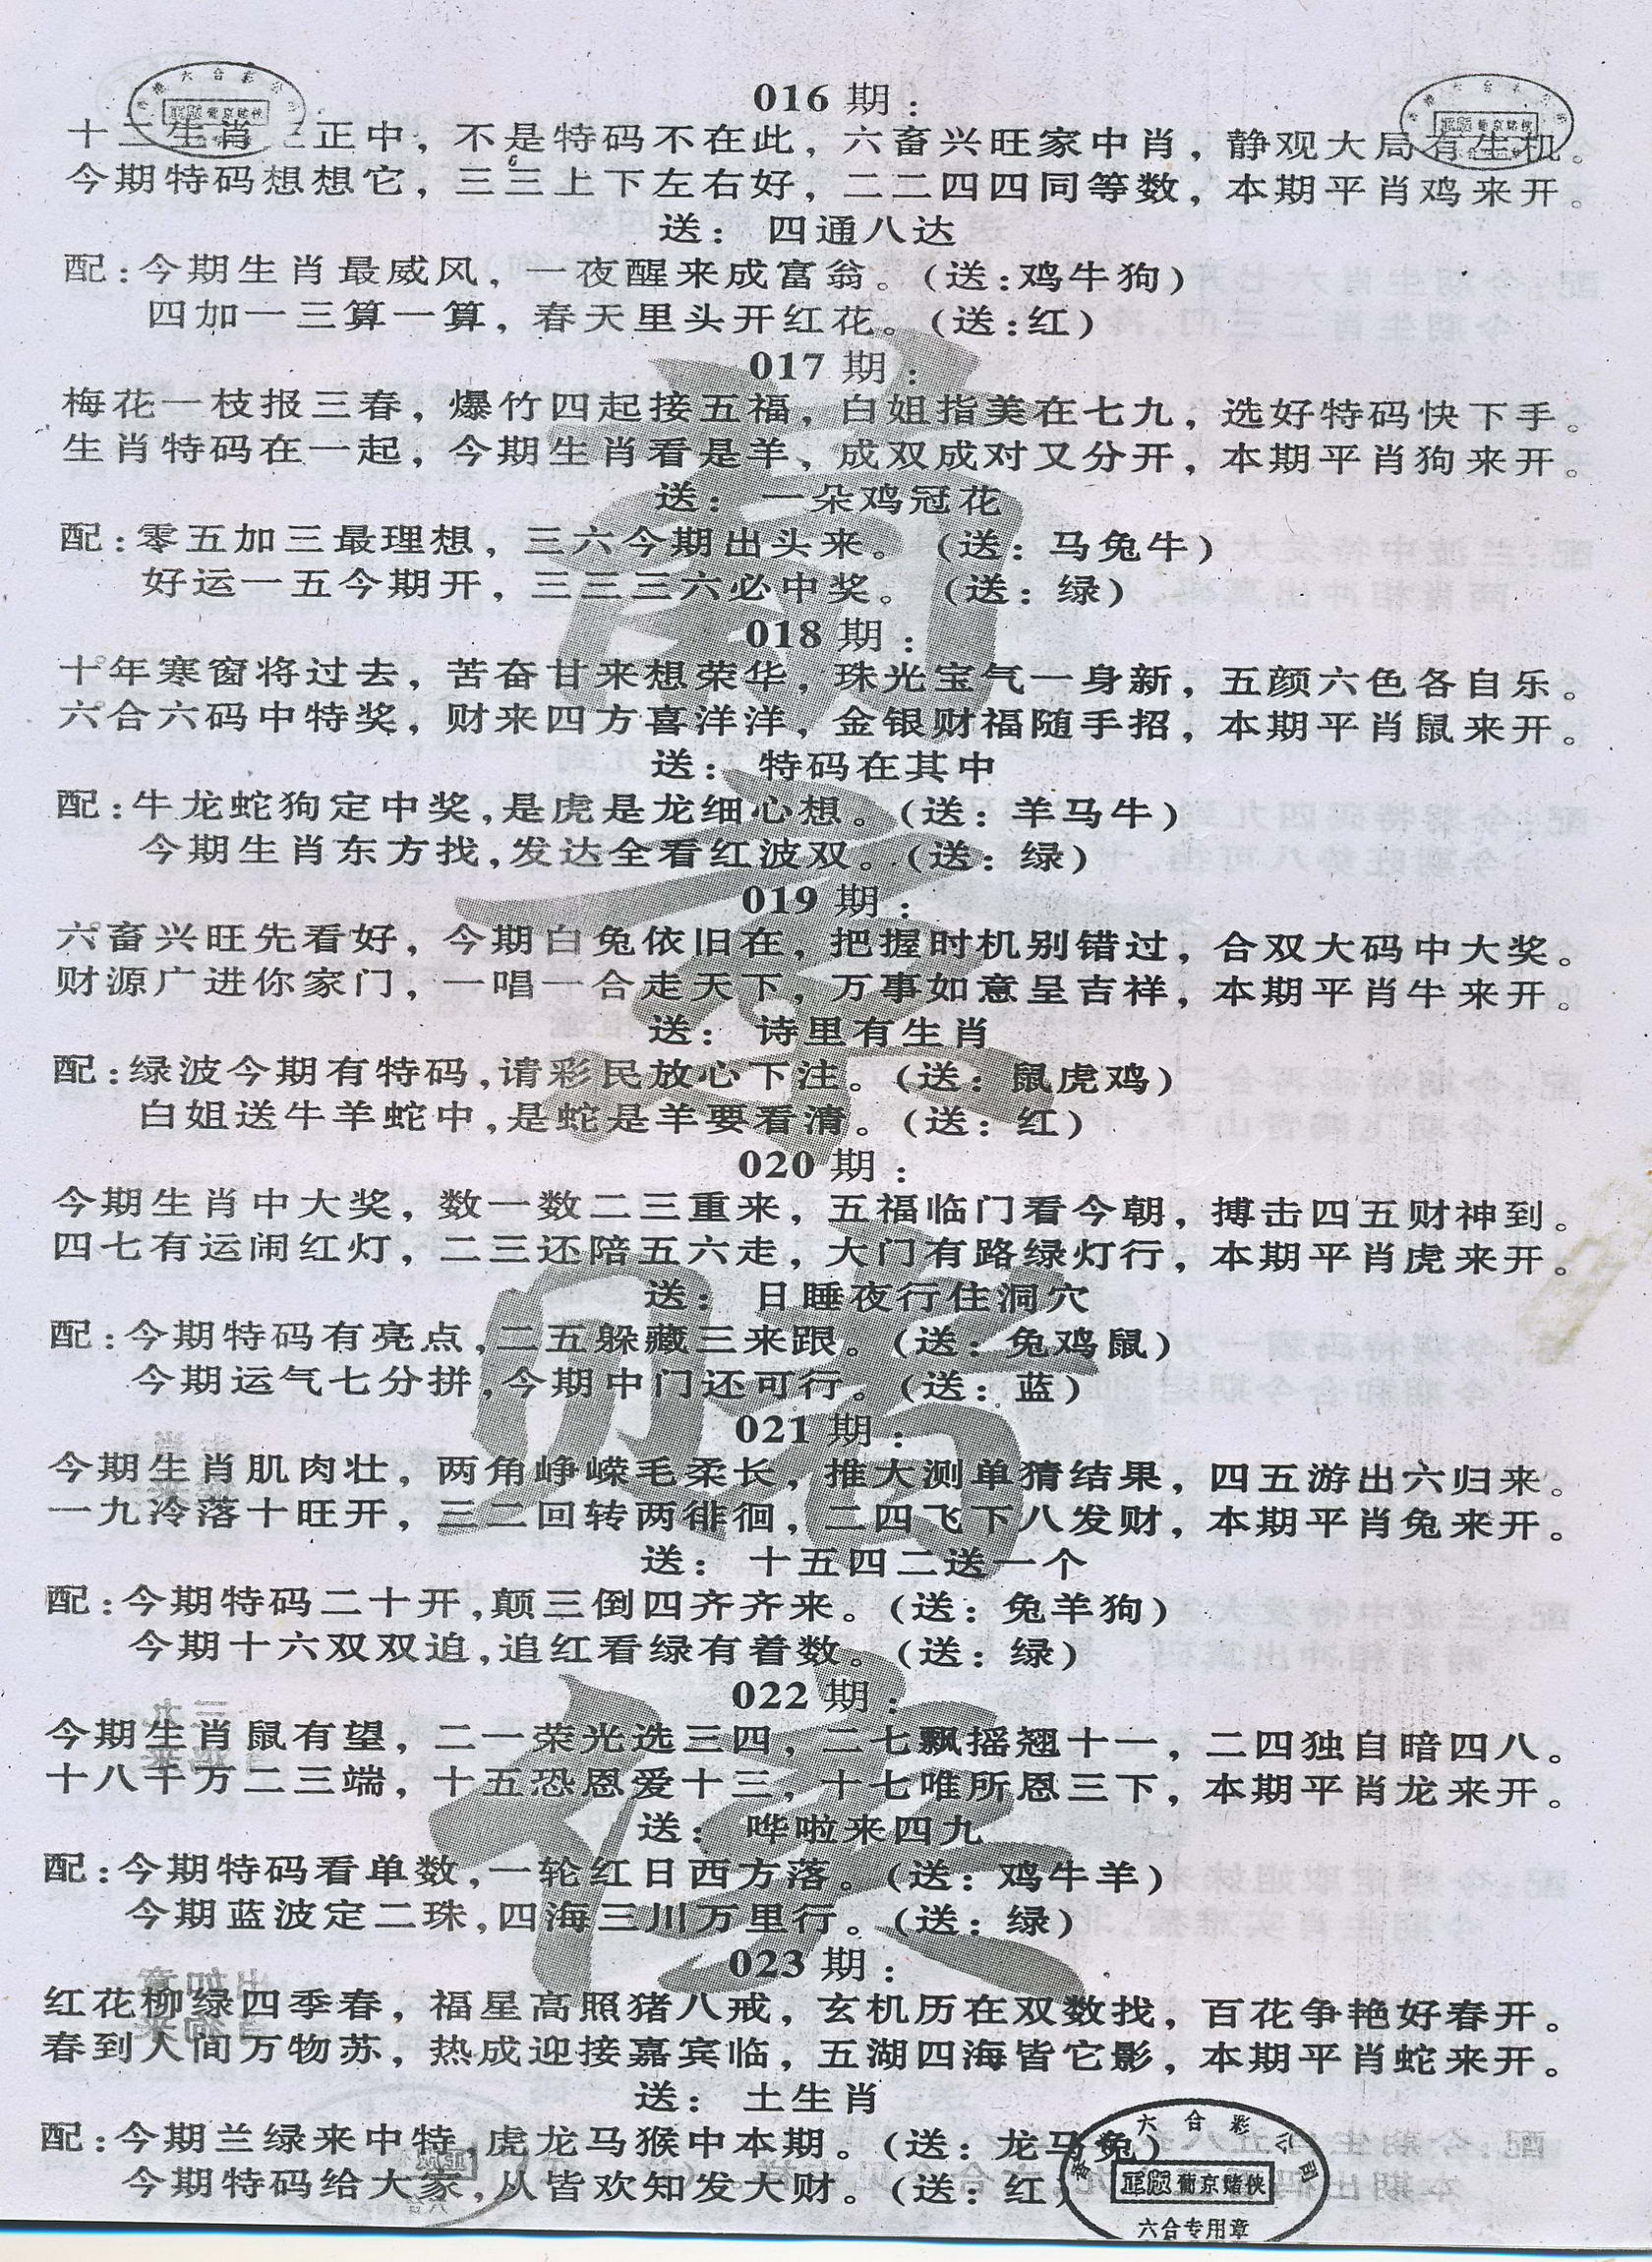 016 期：
十二生肖 正中，不是特码不在此，六畜兴旺家中肖，静观大局有生机。
今期特码想想它，三三上下左右好，二二四四同等数，本期平肖鸡来开。
送： 四通八达
配：今期生肖最威风，一夜醒来成富翁。（送：鸡牛狗）
四加一三算一算，春天里头开红花。（送：红）
017 期：
梅花一枝报三春，爆竹四起接五福，白姐指美在七九，选好特码快下手。
生肖特码在一起，今期生肖看是羊，成双成对又分开，本期平肖狗来开。
送： 一朵鸡冠花
配：零五加三最理想，三六今期出头来。（送：马兔牛）
好运一五今期开，三三三六必中奖。（送：绿）
018 期：
十年寒窗将过去，苦奋甘来想荣华，珠光宝气一身新，五颜六色各自乐。
六合六码中特奖，财来四方喜洋洋，金银财福随手招，本期平肖鼠来开。
送： 特码在其中
配：牛龙蛇狗定中奖，是虎是龙细心想。（送：羊马牛）
今期生肖东方找，发达全看红波双。（送：绿）
019 期：
六畜兴旺先看好，今期白兔依旧在，把握时机别错过，合双大码中大奖。
财源广进你家门，一唱一合走天下，万事如意呈吉祥，本期平肖牛来开。
送： 诗里有生肖
配：绿波今期有特码，请彩民放心下注。（送：鼠虎鸡）
白姐送牛羊蛇中，是蛇是羊要看清。（送：红）
020 期：
今期生肖中大奖，数一数二三重来，五福临门看今朝，搏击四五财神到。
四七有运闹红灯，二三还陪五六走，大门有路绿灯行，本期平肖虎来开。
送： 日睡夜行住洞穴
配：今期特码有亮点，二五躲藏三来跟。（送：兔鸡鼠）
今期运气七分拼，今期中门还可行。（送：蓝）
021 期：
今期生肖肌肉壮，两角峥嵘毛柔长，推大测单猜结果，四五游出六归来。
一九冷落十旺开，三二回转两徘徊，二四飞下八发财，本期平肖兔来开。
送： 十五四二送一个
配：今期特码二十开，颠三倒四齐齐来。（送：兔羊狗）
今期十六双双迫，追红看绿有着数。（送：绿）
022 期：
今期生肖鼠有望，二一荣光选三四，二七飘摇翘十一，二四独自暗四八。
十八千万二三端，十五恐恩爱十三，十七唯所恩三下，本期平肖龙来开。
送： 哗啦来四九
配：今期特码看单数，一轮红日西方落。（送：鸡牛羊）
今期蓝波定二珠，四海三川万里行。（送：绿）
023 期：
红花柳绿四季春，福星高照猪八戒，玄机历在双数找，百花争艳好春开。
春到人间万物苏，热成迎接嘉宾临，五湖四海皆它影，本期平肖蛇来开。
送： 土生肖
配：今期兰绿来中特，虎龙马猴中本期。（送：龙马兔）
今期特码给大家，从皆欢知发大财。（送：红）
六合彩公司
正版葡京赌侠
六合专用章
葡京赌侠